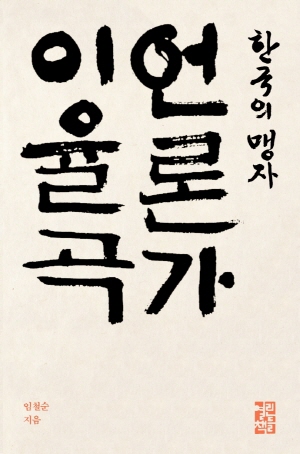 한국의 맹자
언론가
이율곡
임철순
지음
열린
책들